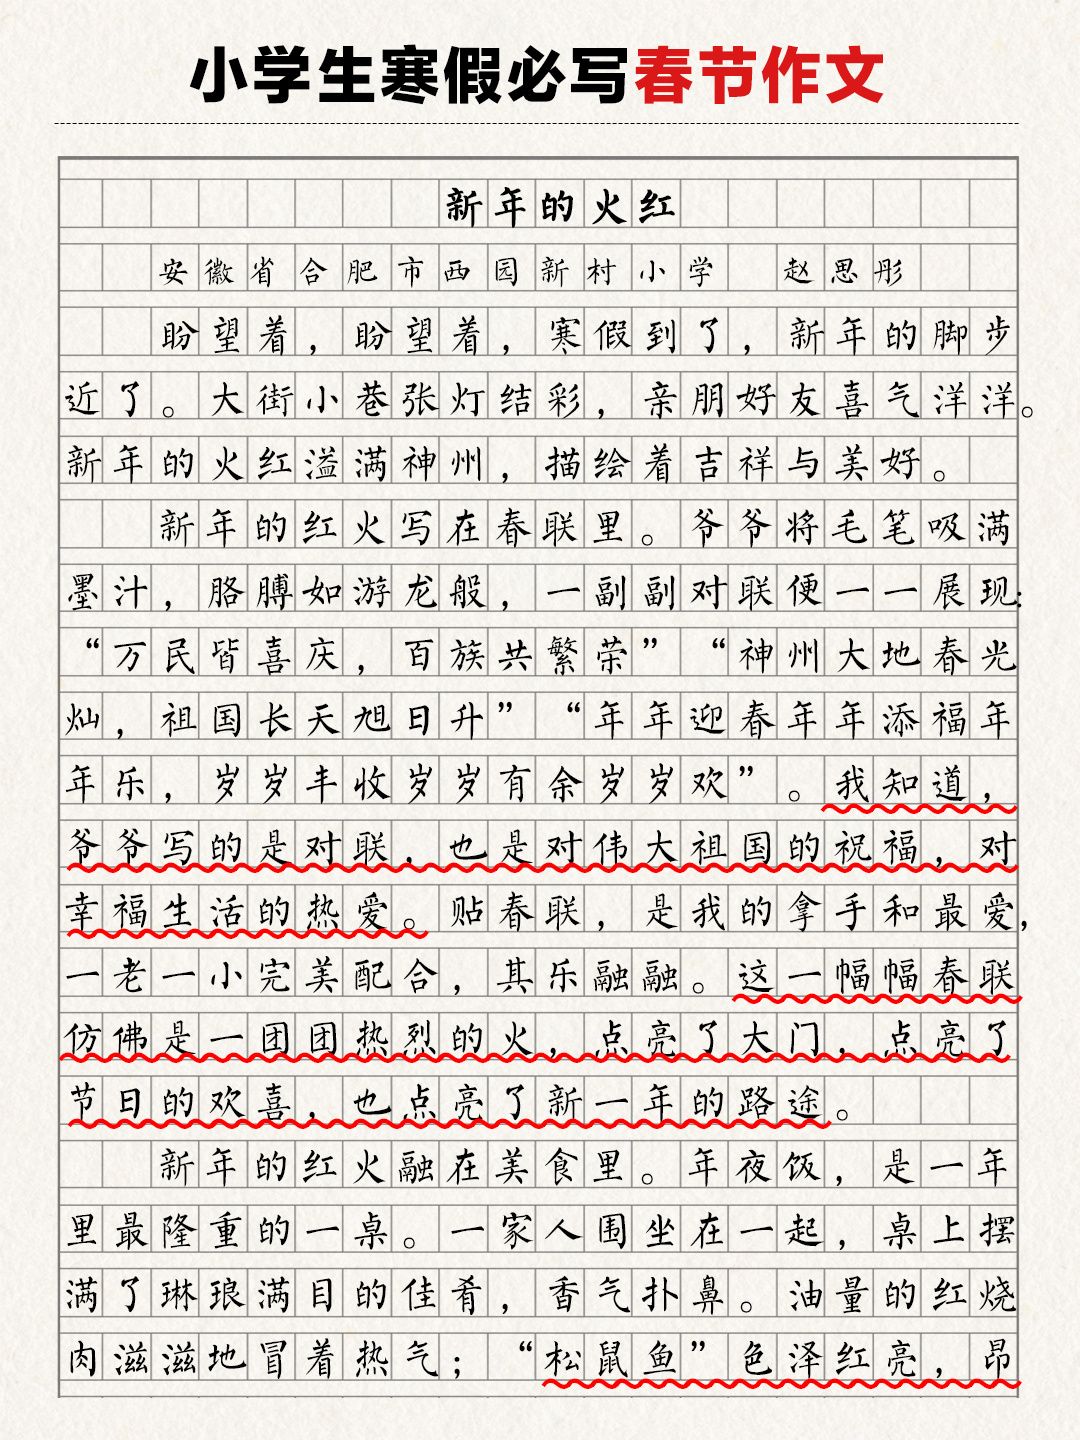 小学生寒假必写春节作文
新年的火红
安徽省合肥市西园新村小学 赵思彤
盼望着，盼望着，寒假到了，新年的脚步
近了。大街小巷张灯结彩，亲朋好友喜气洋洋。
新年的火红溢满神州，描绘着吉祥与美好。
新年的红火写在春联里。爷爷将毛笔吸满
墨汁，胳膊如游龙般，一副副对联便一一展现：
“万民皆喜庆，百族共繁荣”“神州大地春光
灿，祖国长天旭日升”“年年迎春年年添福年
年乐，岁岁丰收岁岁有余岁岁欢”。我知道，
爷爷写的是对联，也是对伟大祖国的祝福，对
幸福生活的热爱。贴春联，是我的拿手和最爱，
一老一小完美配合，其乐融融。这一幅幅春联
仿佛是一团团热烈的火，点亮了大门，点亮了
节日的欢喜，也点亮了新一年的路途。
新年的红火融在美食里。年夜饭，是一年
里最隆重的一桌。一家人围坐在一起，桌上摆
满了琳琅满目的佳肴，香气扑鼻。油量的红烧
肉滋滋地冒着热气；“松鼠鱼”色泽红亮，昂